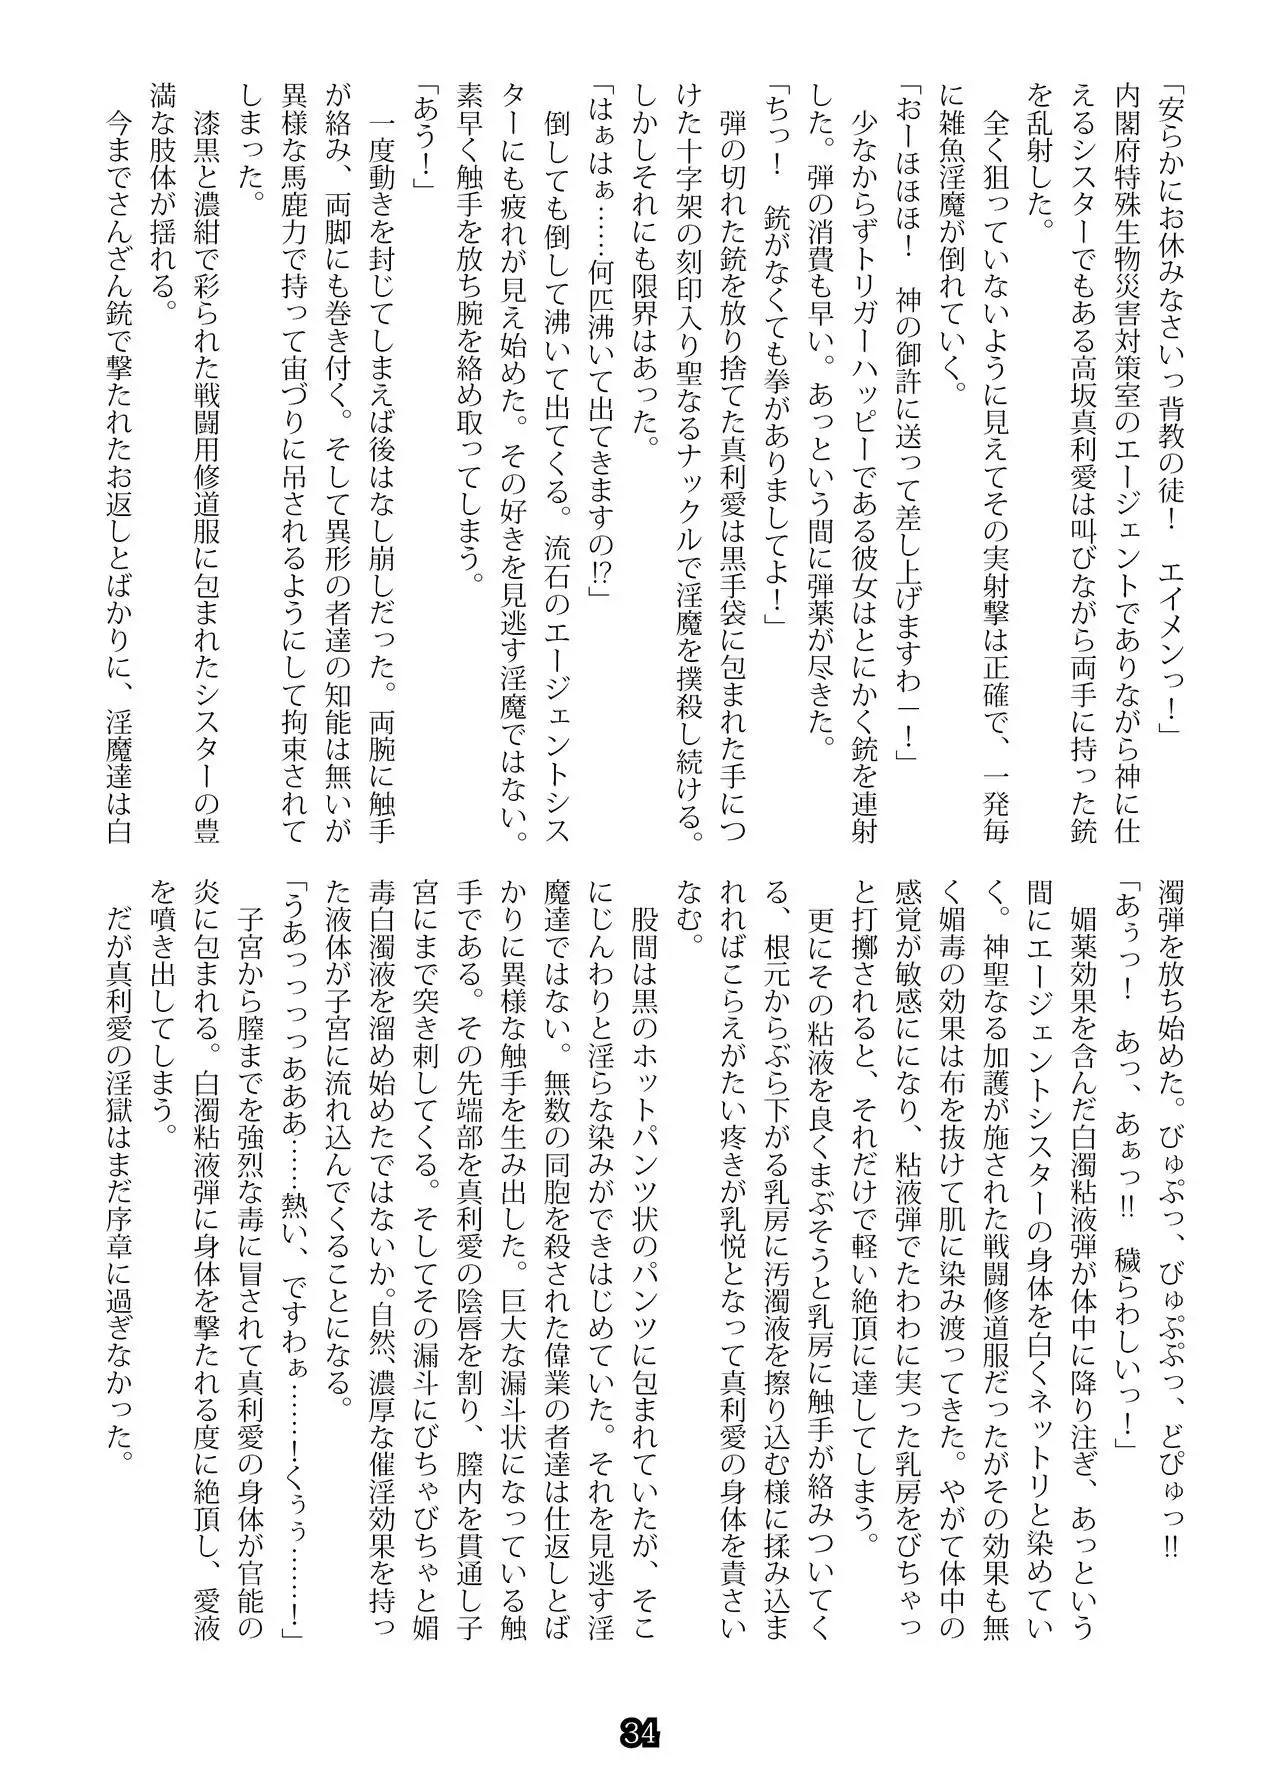 「安らかにお休みなさいっ背教の徒！　エイメンっ！」
内閣府特殊生物災害対策室のエージェントでありながら神に仕
えるシスターでもある高坂真利愛は叫びながら両手に持った銃
を乱射した。
　全く狙っていないように見えてその実射撃は正確で、一発毎
に雑魚淫魔が倒れていく。
「おーほほほ！　神の御許に送って差し上げますわ－！」
　少なからずトリガーハッピーである彼女はとにかく銃を連射
した。弾の消費も早い。あっという間に弾薬が尽きた。
「ちっ！　銃がなくても拳がありましてよ！」
　弾の切れた銃を放り捨てた真利愛は黒手袋に包まれた手につ
けた十字架の刻印入り聖なるナックルで淫魔を撲殺し続ける。
しかしそれにも限界はあった。
「はぁはぁ……何匹沸いて出てきますの⁉」
　倒しても倒して沸いて出てくる。流石のエージェントシス
ターにも疲れが見え始めた。その好きを見逃す淫魔ではない。
素早く触手を放ち腕を絡め取ってしまう。
「あう！」
　一度動きを封じてしまえば後はなし崩しだった。両腕に触手
が絡み、両脚にも巻き付く。そして異形の者達の知能は無いが
異様な馬鹿力で持って宙づりに吊されるようにして拘束されて
しまった。
　漆黒と濃紺で彩られた戦闘用修道服に包まれたシスターの豊
満な肢体が揺れる。
　今までさんざん銃で撃たれたお返しとばかりに、淫魔達は白
濁弾を放ち始めた。びゅぷっ、びゅぷぷっ、どぴゅっ‼
「あぅっ！　あっ、あぁっ‼　穢らわしいっ！」
　媚薬効果を含んだ白濁粘液弾が体中に降り注ぎ、あっという
間にエージェントシスターの身体を白くネットリと染めてい
く。神聖なる加護が施された戦闘修道服だったがその効果も無
く媚毒の効果は布を抜けて肌に染み渡ってきた。やがて体中の
感覚が敏感にになり、粘液弾でたわわに実った乳房をびちゃっ
と打擲されると、それだけで軽い絶頂に達してしまう。
　更にその粘液を良くまぶそうと乳房に触手が絡みついてく
る、根元からぶら下がる乳房に汚濁液を擦り込む様に揉み込ま
れればこらえがたい疼きが乳悦となって真利愛の身体を責さい
なむ。
　股間は黒のホットパンツ状のパンツに包まれていたが、そこ
にじんわりと淫らな染みができはじめていた。それを見逃す淫
魔達ではない。無数の同胞を殺された偉業の者達は仕返しとば
かりに異様な触手を生み出した。巨大な漏斗状になっている触
手である。その先端部を真利愛の陰唇を割り、膣内を貫通し子
宮にまで突き刺してくる。そしてその漏斗にびちゃびちゃと媚
毒白濁液を溜め始めたではないか。自然、濃厚な催淫効果を持っ
た液体が子宮に流れ込んでくることになる。
「うあっっっっあああ……熱い、ですわぁ……！くぅぅ……！」
　子宮から膣までを強烈な毒に冒されて真利愛の身体が官能の
炎に包まれる。白濁粘液弾に身体を撃たれる度に絶頂し、愛液
を噴き出してしまう。
　だが真利愛の淫獄はまだ序章に過ぎなかった。
34